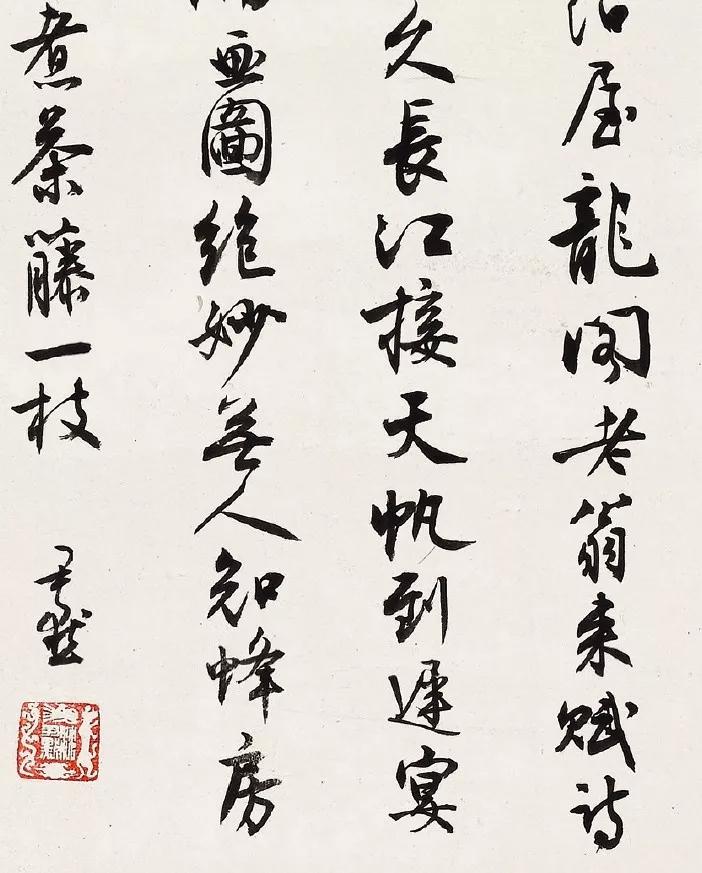 屋龍閣老翁來賦詩
久長江接天帆到遲宴
畫圖絕妙無人知蜂房
煮茶藤一枝
尹默